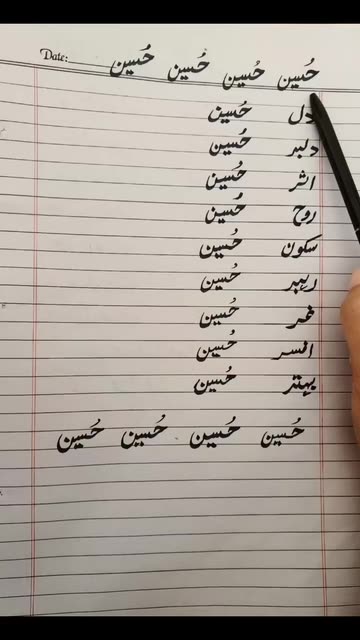 Date:
حُسین حُسین حُسین حُسین
دل حُسین
دلبر حُسین
اثر حُسین
روح حُسین
سکون حُسین
رہبر حُسین
حُسین
افسر حُسین
بہتر حُسین
حُسین حُسین حُسین حُسین